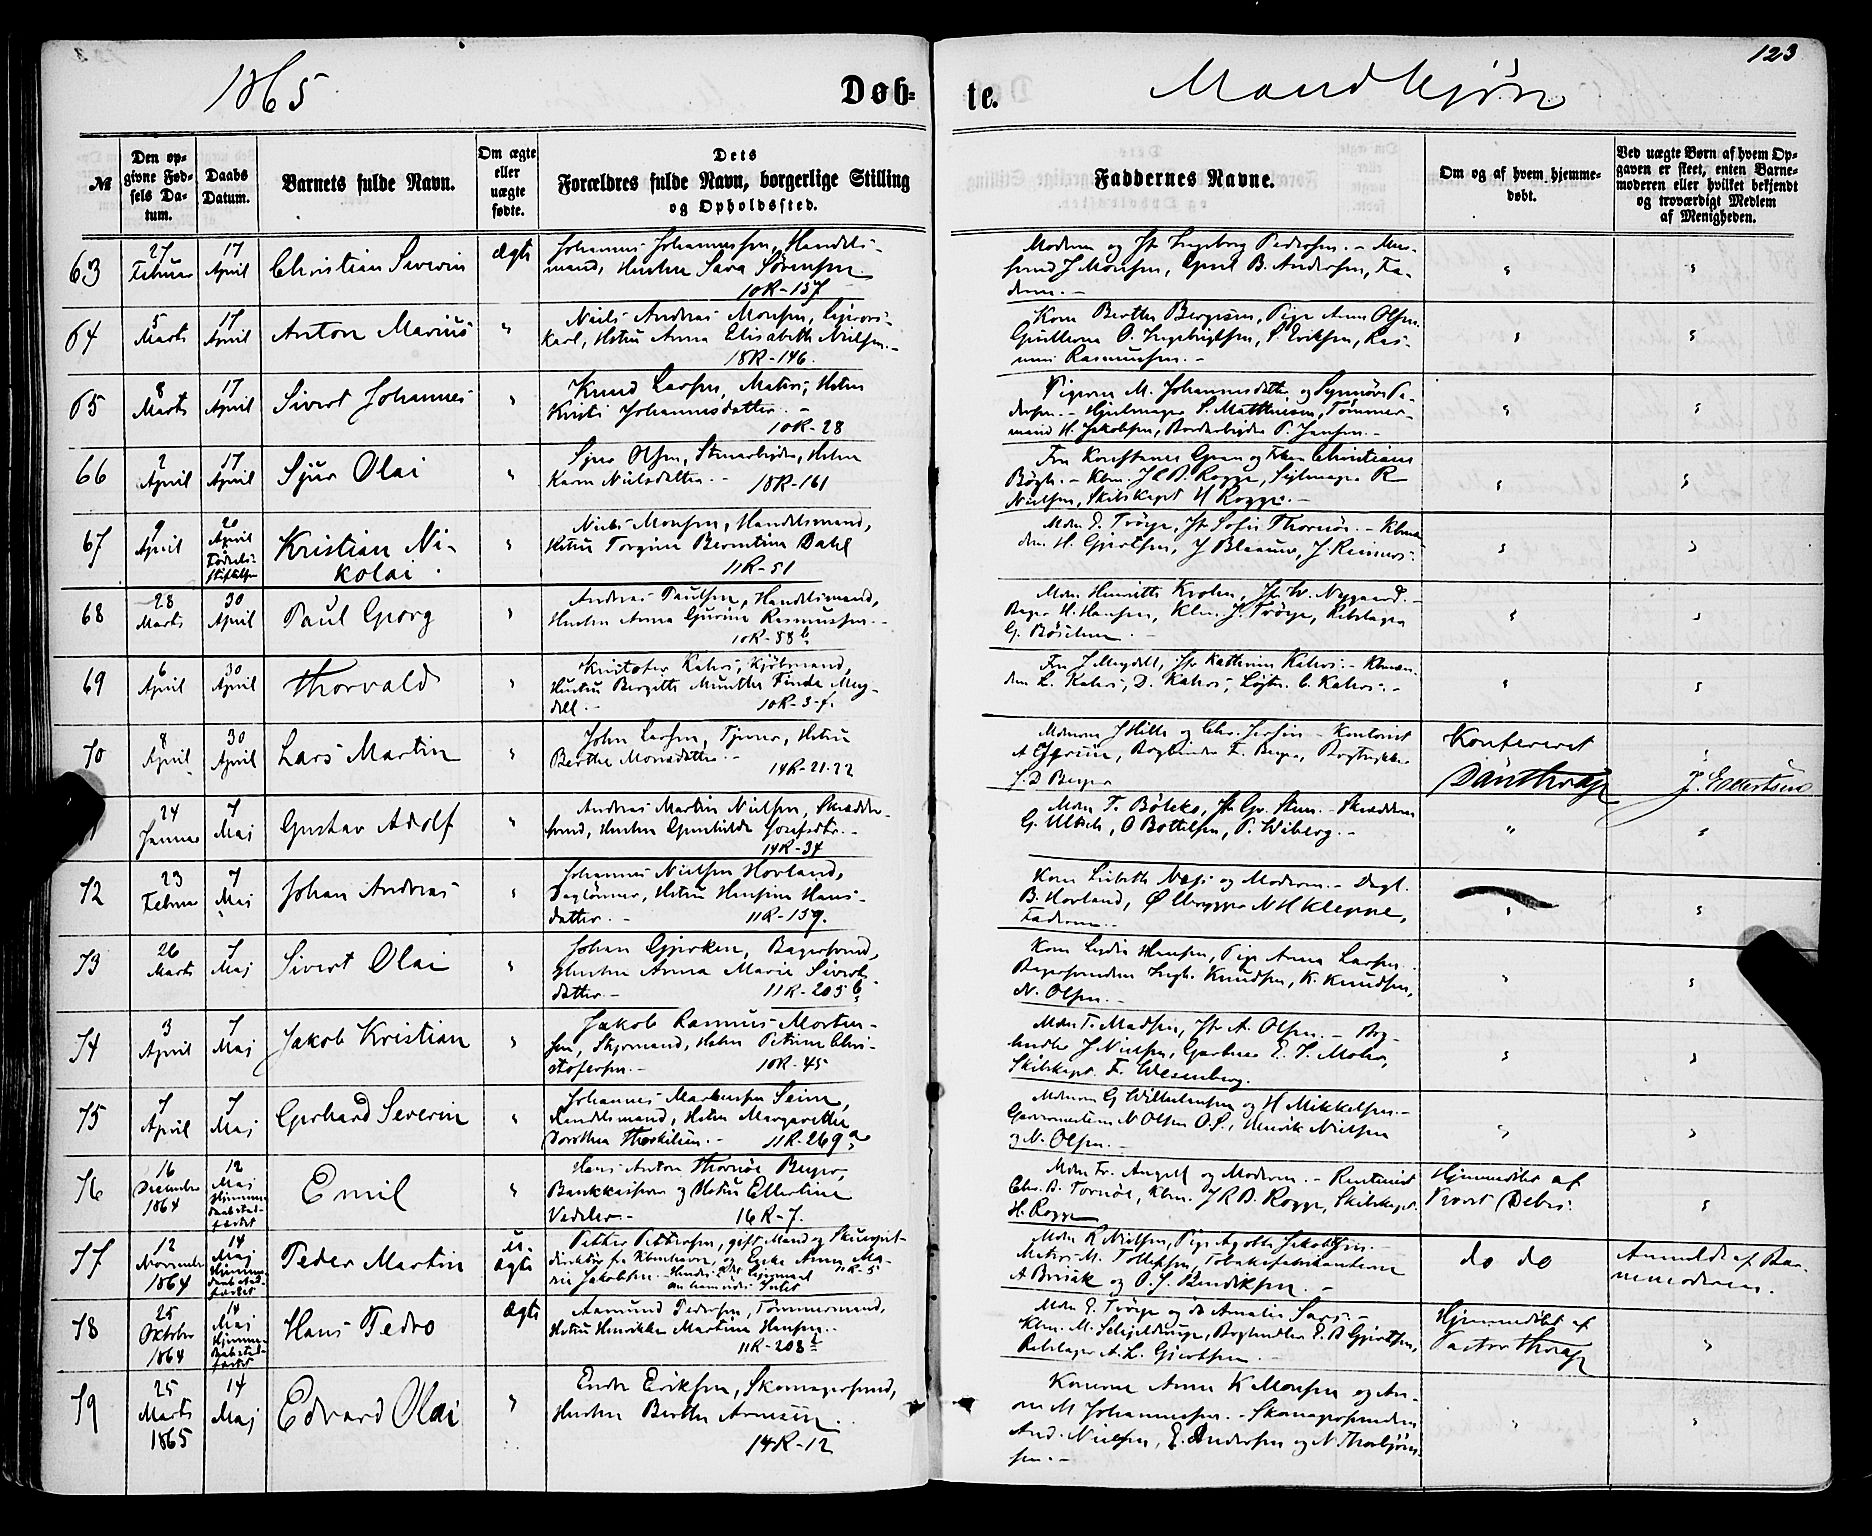 123
1865
Døb-
te.
Mandkjøn
№
Den op-
givne Fød-
sels Da-
tum.
Daabs
Datum.
Barnets fulde Navn.
Om ægte
eller
uægte
fødte.
Dets
Forældres fulde Navn, borgerlige Stilling
og Opholdssted.
Faddernes Navne.
Om og af hvem hjemme-
døbt.
Ved uægte Børn af hvem Op-
gaven er skeet, enten Barne-
moderen eller hvilket bekjendt
og troværdigt Medlem
af Menigheden.
63
27
Februar
17
April
Christian Severin
ægte
Johannes Johannessen, Handels-
mand, Hustru Sara Sørensen
10R-157
Moderen og Jfr Ingeborg Pedersen. -
J Monsen, B. Andersen, Fa-
deren. -
64
5
Marts
17
April
Anton Marius
"
Niels Andreas Monsen,
karl, Hstru Anna Elisabeth Nielsen. -
18R-146.
Kone Berthe Bergesen, Pige Anna Olsen
O. Ingebrigtsen, Eriksen, Ras-
mus Rasmussen. -
65
8
Marts
17
April
Sivert Johannes
"
Knud Larsen, Matros, Hstru
Kristi Johannesdatter. -
10R-28
Pigerne M. Johannesdatter og Synnøve Pe-
dersen. - Hjulmager S. Matthiesen, Tømmer-
mand H. Jakobsen, P. Jansen. -
66
2
April
17
April
Sjur Olai
"
Sjur Olsen, Stenarbeider, Hstru
Karen Nielsdatter. - 18R-161
Fru Konstance Gran og Frøken Christiane
Bøgh. - Kbm. J R D. Rogge, Seilmager R
Nielsen, Skibskapt H Rogge. -
67
9
April
20
April
Fødsels-
stiftelsen
Kristian Ni-
kolai.
"
Niels Monsen, Handelsmand,
Hstru Torgine Berentine Dahl
11R-51
Mdm E. Trøye, Jfr Sofie Thornøe. - Kbmæn-
dene H. Gjertsen, J Blaauw, J. Reimers. -
68
28
Marts
30
April
Paul Georg
"
Andreas Paulsen, Handelsmand,
Hustru Anna Gurine Rasmussen. -
10R-88b
Mdm Henriette Krohn, Jfr W. Nygaard. -
Bager H. Hansen, Kbm. J. Trøye, Rebslager
G. -
69
6
April
30
April
Thorvald
"
Kristofer Kahrs, Kjøbmand,
Hustru Bergitte Munthe Finde Mey-
dell. - 10R-3-7.
Fru J Meydell, Jfr Kathrine Kahrs. - Kbmæn-
dene L. Kahrs, D. Kahrs, Løjtn. C. Kahrs. -
70
8
April
30
April
Lars Martin
"
John Larsen, Tjener, Hstru
Berthe Monsdatter. -
14R-21-22
Mdmerne J Hille og Chr. Jersin - Kontorist
A, Bogbinder F. Beyer, Bogtrykker
J. D Beyer
Konfereret
Danthorap
J. Ellertsen
24
Januar
7
Maj
Gustav Adolf
"
Andreas Martin Nielsen, Skrædder-
svend, Hustru Gunhilde Josefsdtr. -
14R-34
Mdm T. Bølcke, Jfr Gr. Steen. - Skrædderne
G. Ulrich, O Bottelsen, P. Wiberg. -
72
23
Februar
7
Maj
Johan Andreas
"
Johannes Nielsen Hovland,
Daglønner, Hstru Hansine Hans-
datter. - 11R-159.
Kone Lisbeth Næss og Moderen. - Dagl.
B. Hovland, Ølbrygger N H Kleppe,
Faderen. -
73
26
Marts
7
Maj
Sivert Olai
"
Johan Gjerken, Bagersvend,
Hustru Anna Marie Siverts-
datter. - 11R-205b
Kone Lydia Hansen, Pige Anna Larsen.
Bagersvendene Ingb. Knudsen, K. Knudsen,
N. Olsen. -
74
3
April
7
Maj
Jakob Kristian
"
Jakob Rasmus Morten-
sen, Styrmand, Hstru Petrine Chri-
stofersen. - 10R-45
Mdm T. Madsen, Jfr A. Olsen. - Bog-
handler J Nielsen, Gartner E. S. Mohr,
Skibskapt. Fr. Wesenberg.
75
7
April
7
Maj
Gerhard Severin
"
Johannes Markussen Seim,
Handelsmand, Hstru Margarethe
Dorothea Therkilsen. - 11R-269a
Mdmerne G Wilhelmsen og H Mikkelsen. -
N Olsen O.S., Henrik Nielsen
og N. Olsen. -
76
16
December
1864
12
Maj
Hjemme-
daab stad-
fæstet
Emil
"
Hans Anton Thornøe Beyer,
Bankkasserer og Hstru Ellertine
Vedeler. - 16R-7.
Mdm Fr. Angell og Moderen. - Rentenist
Chr. B. Tornøe, Kbm. J R D. Rogge, Skibskapt.
H. Rogge
Hjemmedøbt af
Provst Debes.
77
12
November
1864
14
Maj
Hjemme-
daab stad-
fæstet
Peder Martin
u-
ægte
Petter Pettersen, gift Mand og Skuespil-
direktør fra Kbenhavn, og Enke Anna Ma-
rie Jakobsen. - 11R-5
Mdm R Nielsen, Pige Agathe Jakobsen. -
Matros M. Tollefsen, Tobaksfabrikanterne
A Brisak og O. J. Bendiksen. -
do do
Anmeldt af Bar-
nemoderen.
78
25
Oktober
1864
14
Maj
Hjemme-
daab stad-
fæstet
Hans Pedro
ægte
Aamund Pedersen, Tømmermand,
Hstru Henrikke Martine Hansen. -
11R-208
Mdm E. Trøye og do Amalie Sars. -
Kbm. M. Schjelderup, Boghandler E. B Gjertsen,
Rebslager A. L. Gjertsen. -
Hjemmedøbt af
Pastor Thorap
79
25
Marts
1865
14
Maj
Edvard Olai
"
Endre Eriksen, Skomagersvend,
Hustru Berthe Arnesen.
14R-12
Konerne Anna K Monsen og An-
ne M Johannessen. - Skomagersvendene
And. Nielsen, E. Andersen og N. Thorbjørn-
sen. -